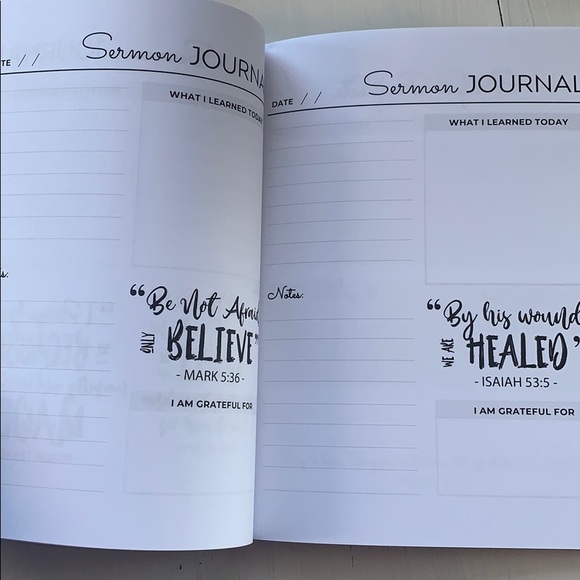 Sermon JOURNA
TE / /
WHAT I LEARNED TODAY
s.
“Be Not Afraid
ONLY BELIEVE”
- MARK 5:36 -
I AM GRATEFUL FOR
Sermon JOURNAL
DATE / /
WHAT I LEARNED TODAY
Notes.
“By his wound
WE ARE HEALED”
- ISAIAH 53:5 -
I AM GRATEFUL FOR